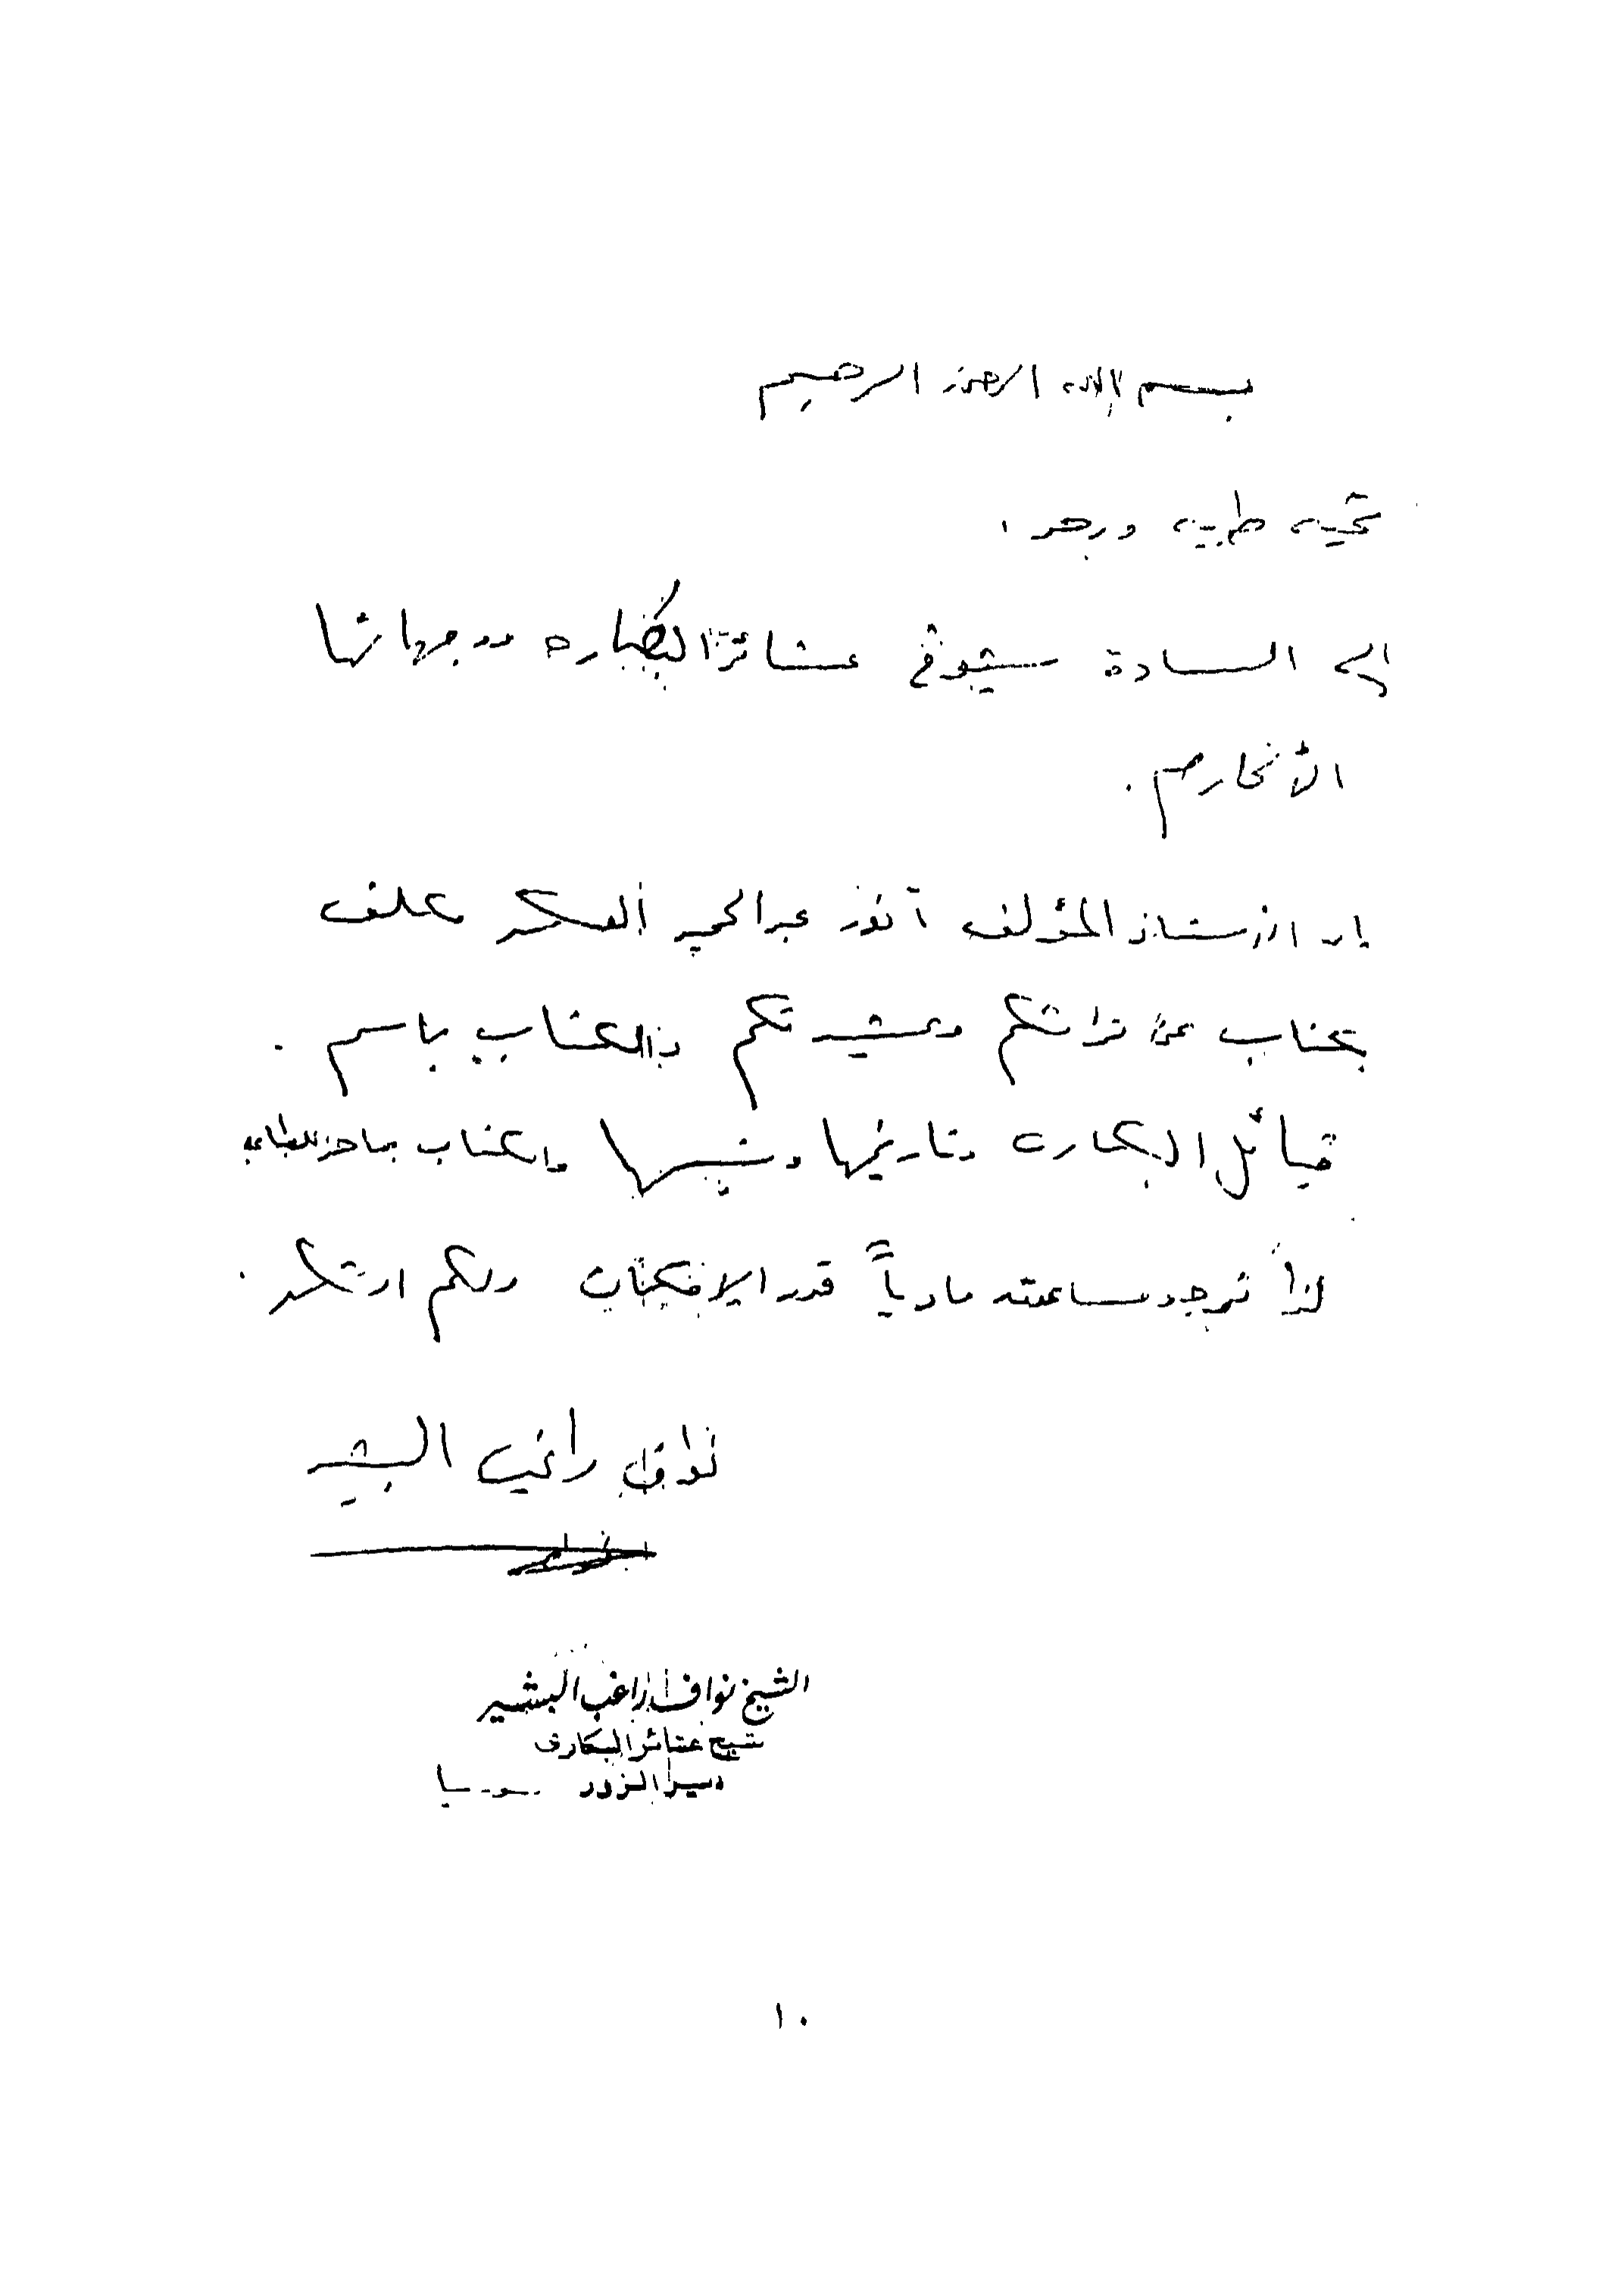 بسم الله الرحمن الرحيم
تحيه طيبه وبعد .
إلى السادة شيوخ عشائر البكاره ووجهائها
الأكارم .
إن الأستاذ المؤلف أنور عبد الحميد العسكر مكلف
بكتاب عن تراثكم وعشيرتكم والكتاب باسم .
قبائل البكاره وتاريخها ونسبها والكتاب جاهز للطباعه
لذا نرجو مساعدته مادياً قدر الإمكان ولكم الشكر .
نواف راغب البشير
الشيخ نواف راغب البشير
شيخ عشائر البكارة
ديرالزور سوريا
١٠